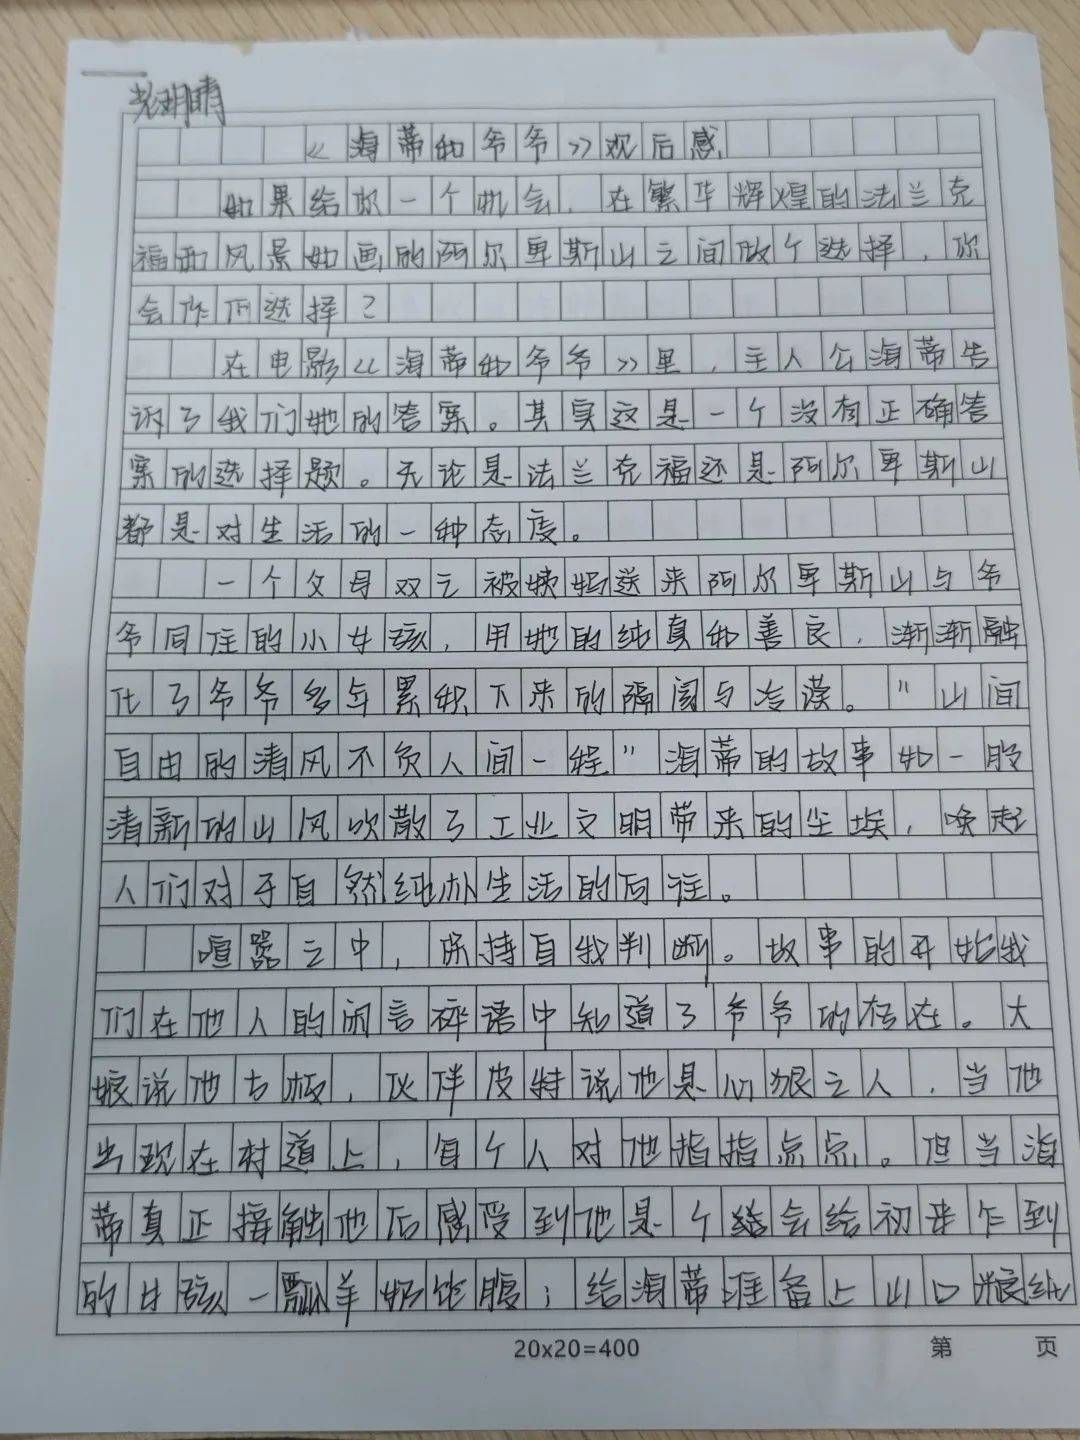 《海蒂和爷爷》观后感
如果给你一个机会，在繁华辉煌的法兰克
福和风景如画的阿尔卑斯山之间做个选择，你
会作何选择？
在电影《海蒂和爷爷》里，主人公海蒂告
诉了我们她的答案。其实这是一个没有正确答
案的选择题。无论是法兰克福还是阿尔卑斯山
都是对生活的一种态度。
一个父母双亡被姨妈送来阿尔卑斯山与爷
爷同住的小女孩，用她的纯真和善良，渐渐融
化了爷爷多年累积下来的隔阂与冷漠。"山间
自由的清风不负人间一程"海蒂的故事如一股
清新的山风吹散了工业文明带来的尘埃，唤起
人们对于自然纯朴生活的向往。
喧嚣之中，保持自我判断。故事的开始我
们在他人的闲言碎语中知道了爷爷的存在。大
娘说他古板，伙伴皮特说他是心狠之人，当他
出现在村道上，每个人对他指指点点。但当海
蒂真正接触他后感受到他是个会给初来乍到
的女孩一瓢羊奶饱腹；给海蒂准备上山口粮
20x20=400
第 页